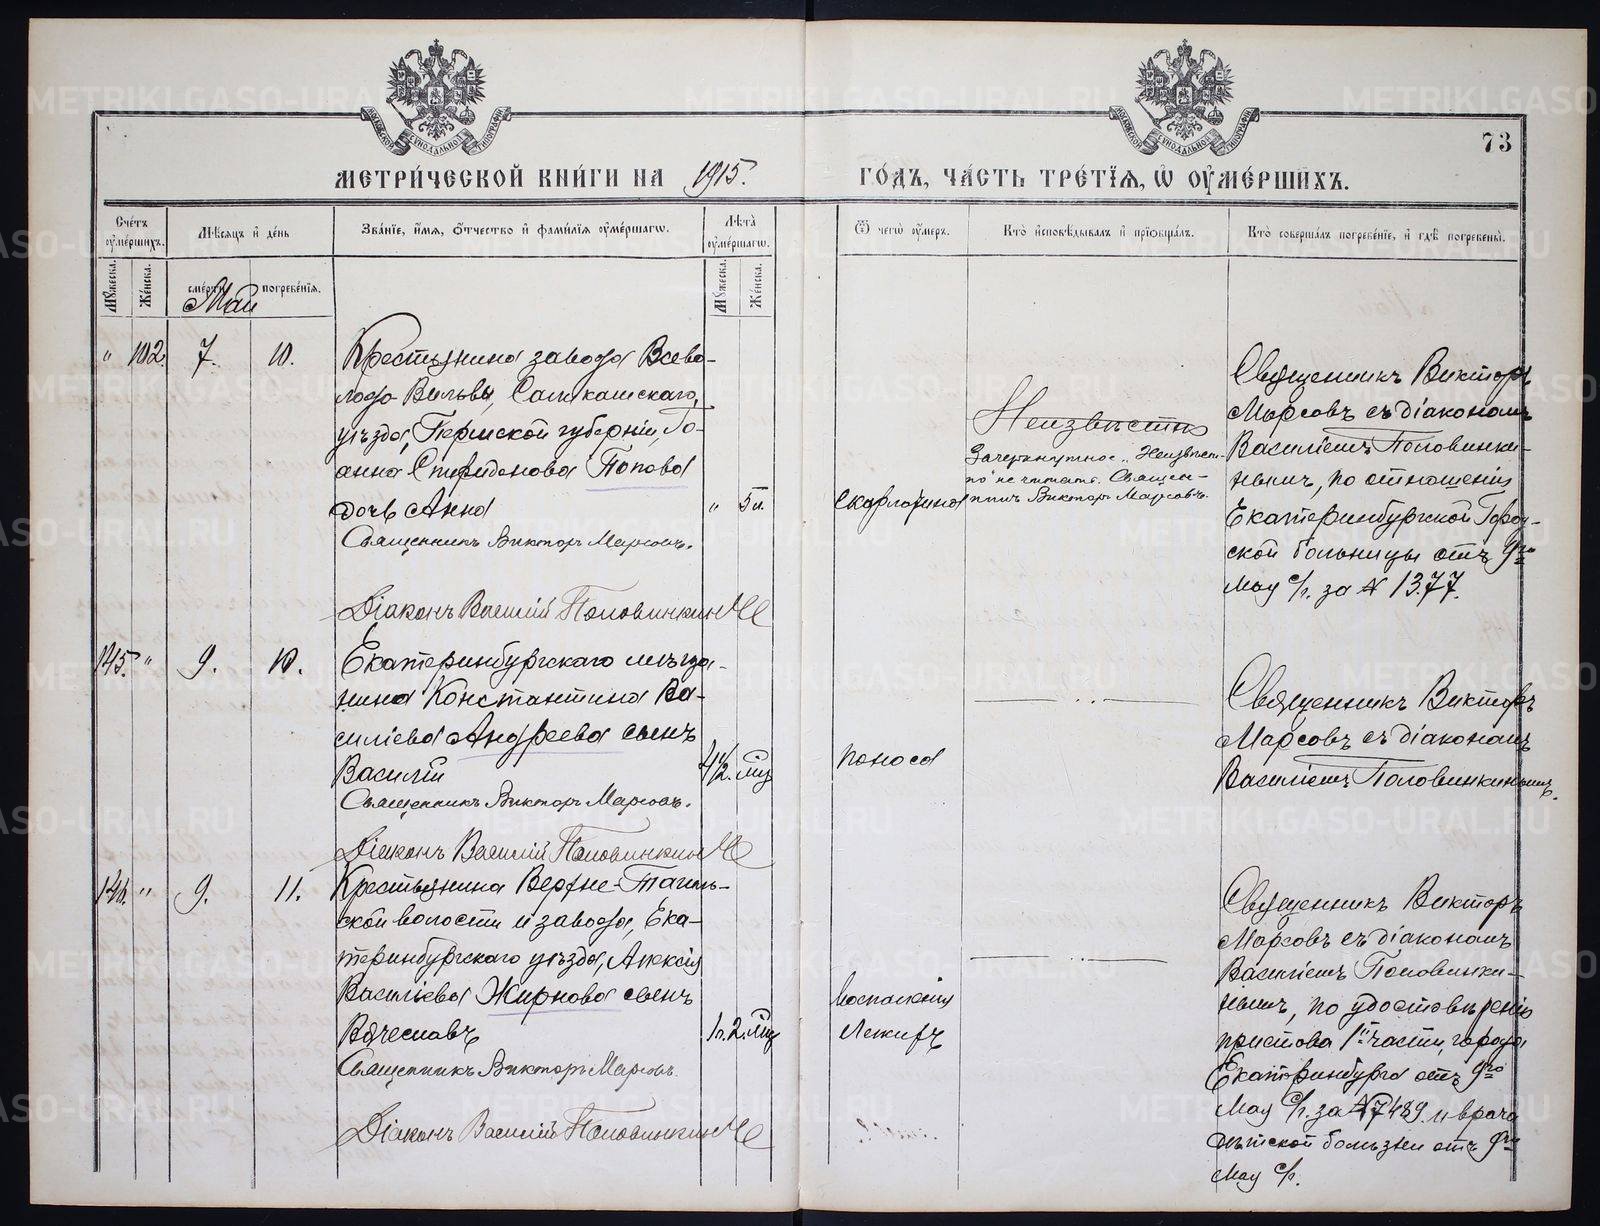 МЕТРИ́ЧЕСКОЙ КНИ́ГИ НА 1915.
ГО́ДЪ, ЧА́СТЬ ТРЕ́ТІЯ, Ѡ ОУМЕ́РШИХЪ.
73
Сче́тъ оуме́ршихъ.
Мѣ́сяцъ и де́нь
Зва́ніе, и́мя, о́тчество и фами́лія оуме́ршагѡ.
Лѣта̀ оуме́ршагѡ.
Ѿ чегѡ̀ оу́меръ.
Кто̀ исповѣ́дывалъ и пріѡбща́лъ.
Кто̀ соверша́лъ погребе́ніе, и гдѣ̀ погребены̀.
Му́жеска.
Же́нска.
сме́рти
погребе́нія.
Му́жеска.
Же́нска.
Май
" 102. 7. 10.
Крестьянина завода Всево-
лодо Вильвы, Саликамскаго,
уѣзда, Пермской губерніи, Іо-
анна Спиридонова Попова
дочь Анна
" 5 л.
Священникъ Викторъ Марсовъ.
Діаконъ Василій Половинкинъ
Скарлатина
Неизвѣстно
Зачеркнутое „Неизвѣст-
но" не читать. Священ-
никъ Викторъ Марсовъ.
Священникъ Викторъ
Марсовъ съ діакономъ
Василіемъ Половинки-
нымъ, по отношенію
Екатеринбургской Город-
ской больницы отъ 9го
мая с/г. за № 1377.
145. " 9. 10.
Екатеринбургскаго мѣща-
нина Константина Ва-
силіева Андреева сынъ
Василій
4 1/2. мц
Священникъ Викторъ Марсовъ.
Діаконъ Василій Половинкинъ
поноса
Священникъ Викторъ
Марсовъ съ діакономъ
Василіемъ Половинкинымъ.
146. " 9. 11.
Крестьянина Верхне-Тагиль-
ской волости и завода, Ека-
теринбургскаго уѣзда, Алексія
Васильева Жирнова сынъ
Вячеславъ
1 г. 2. мц
Священникъ Викторъ Марсовъ.
Діаконъ Василій Половинкинъ
Воспаленія
Легкихъ
Священникъ Викторъ
Марсовъ съ діакономъ
Василіемъ Половинки-
нымъ, по удостовѣренію
пристава 1й части, города
Екатеринбурга отъ 9го
мая с/г. за № 7489. и врача
дѣтской больницы отъ
мая с/г.